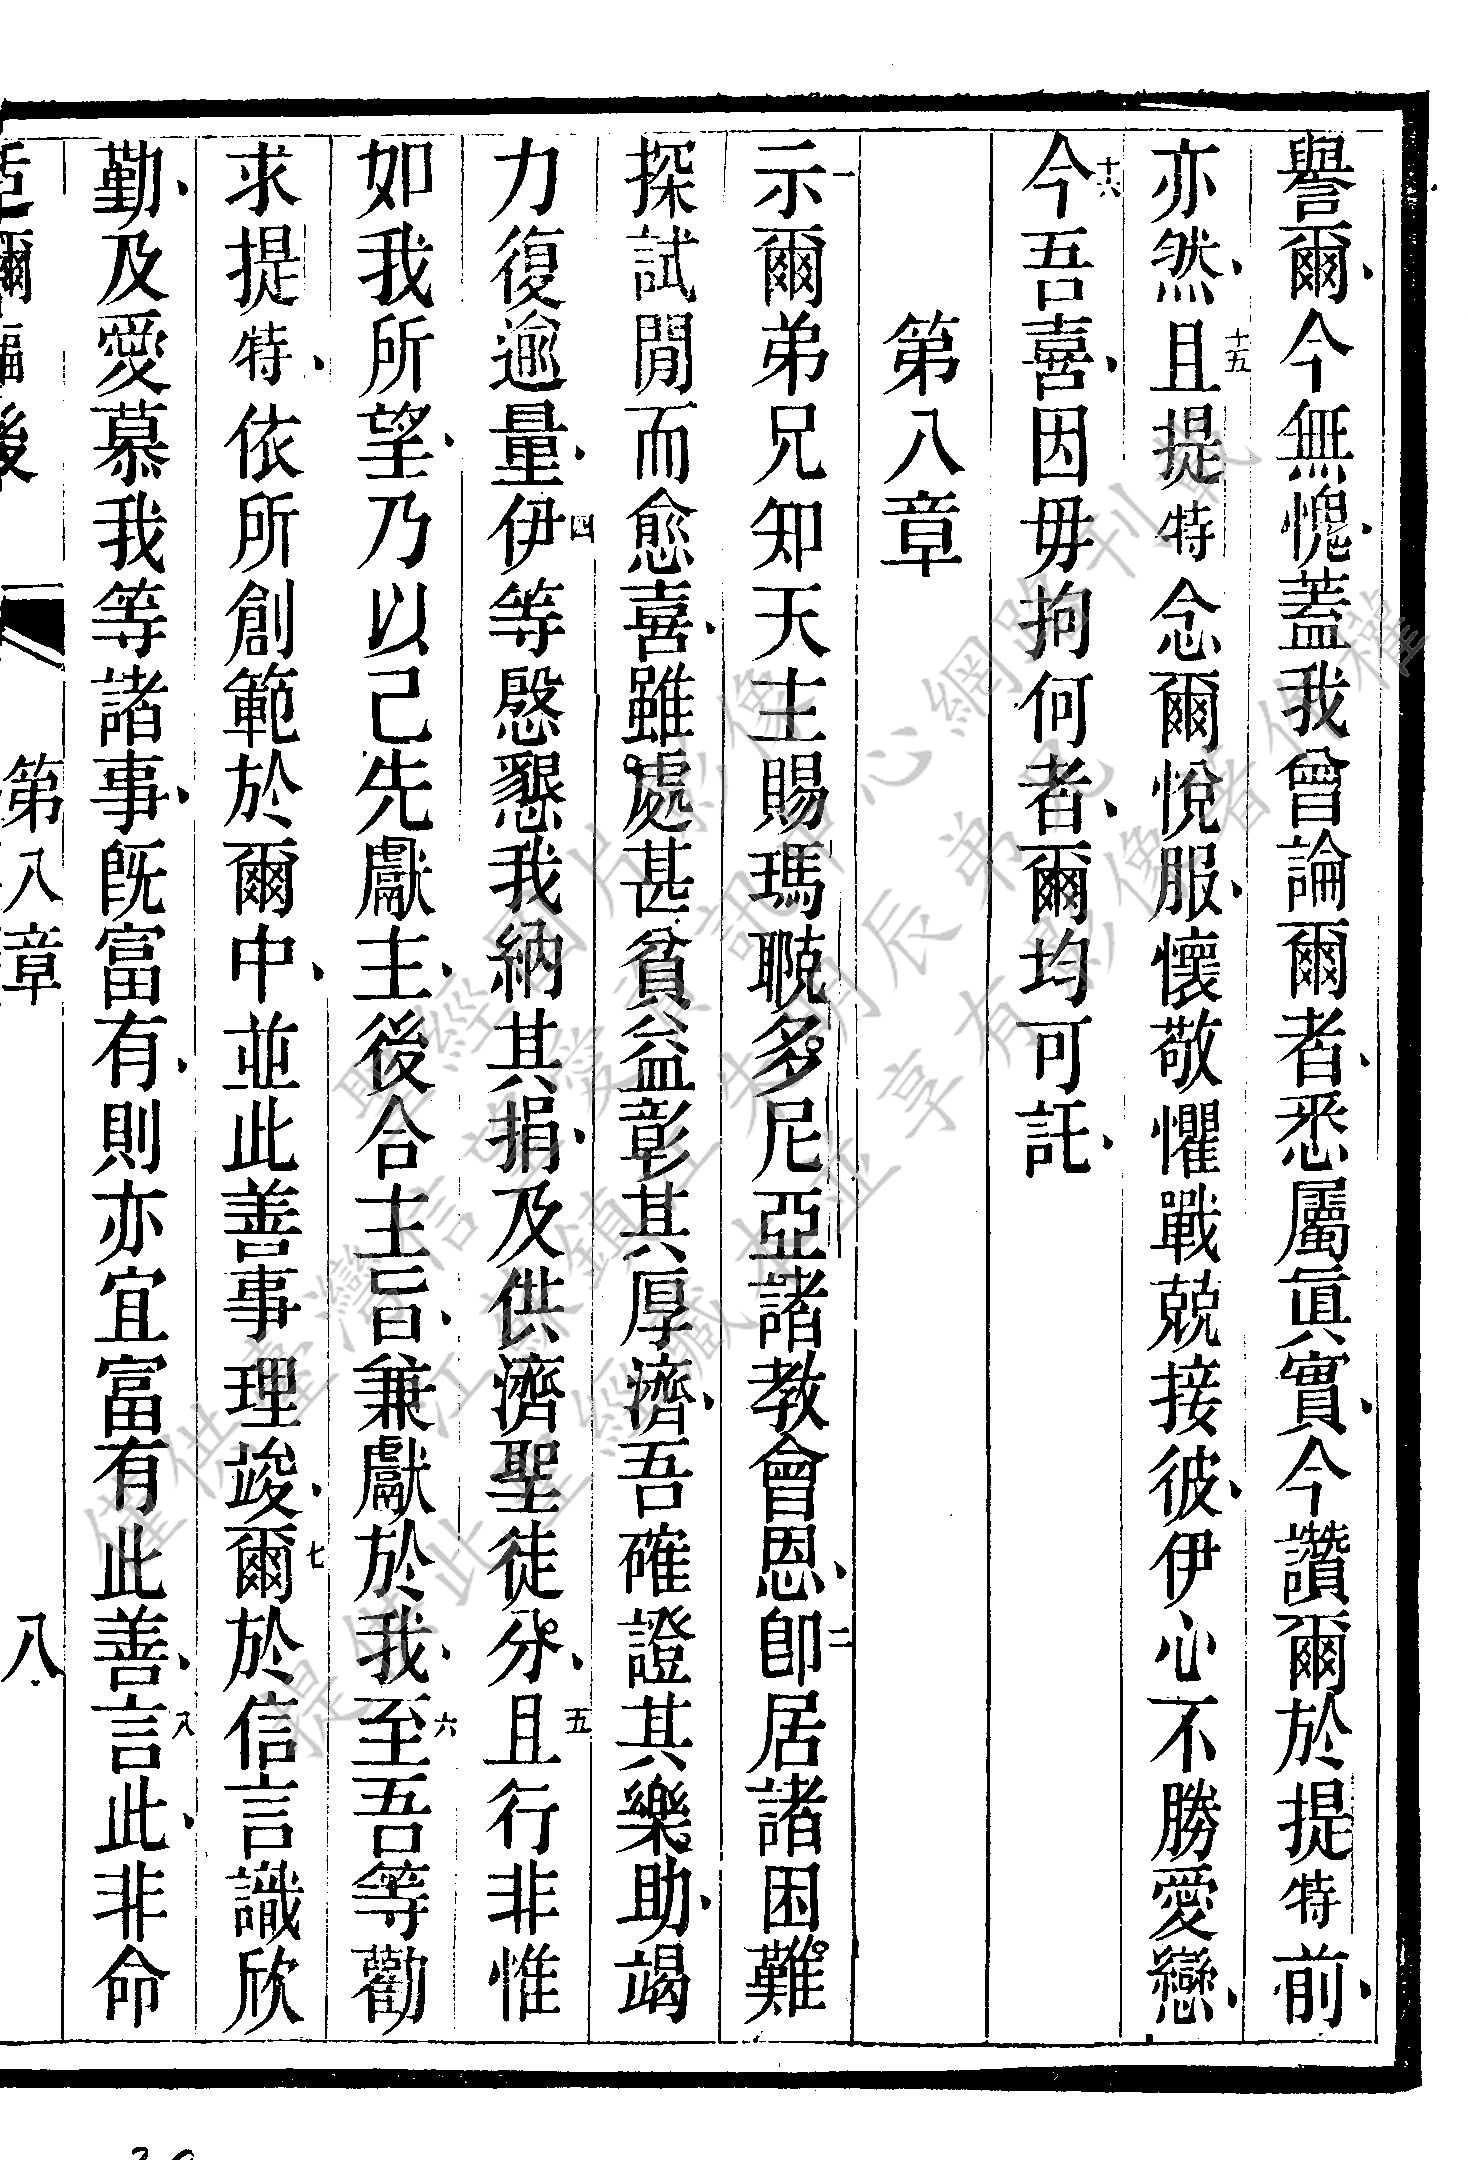 譽爾、今無愧、蓋我曾論爾者、悉屬眞實、今讚爾於提特前、
亦然、十五且提特念爾悅服、懷敬懼戰兢接彼、伊心不勝愛戀、
十六今吾喜、因毋拘何者、爾均可託、
第八章
一示爾弟兄知天主賜瑪聭多尼亞諸教會恩、二卽居諸困難
探試閒而愈喜、雖處甚貧益彰其厚濟、吾確證其樂助、竭
力復逾量、四伊等慇懇我納其捐、及供濟聖徒分、五且行非惟
如我所望、乃以己先獻主、後合主旨、兼獻於我、六至吾等勸
求提特、依所創範於爾中、並此善事理竣、七爾於信言識欣
勤、及愛慕我等諸事、旣富有、則亦宜富有此善、八言此、非命
後
第八章
八